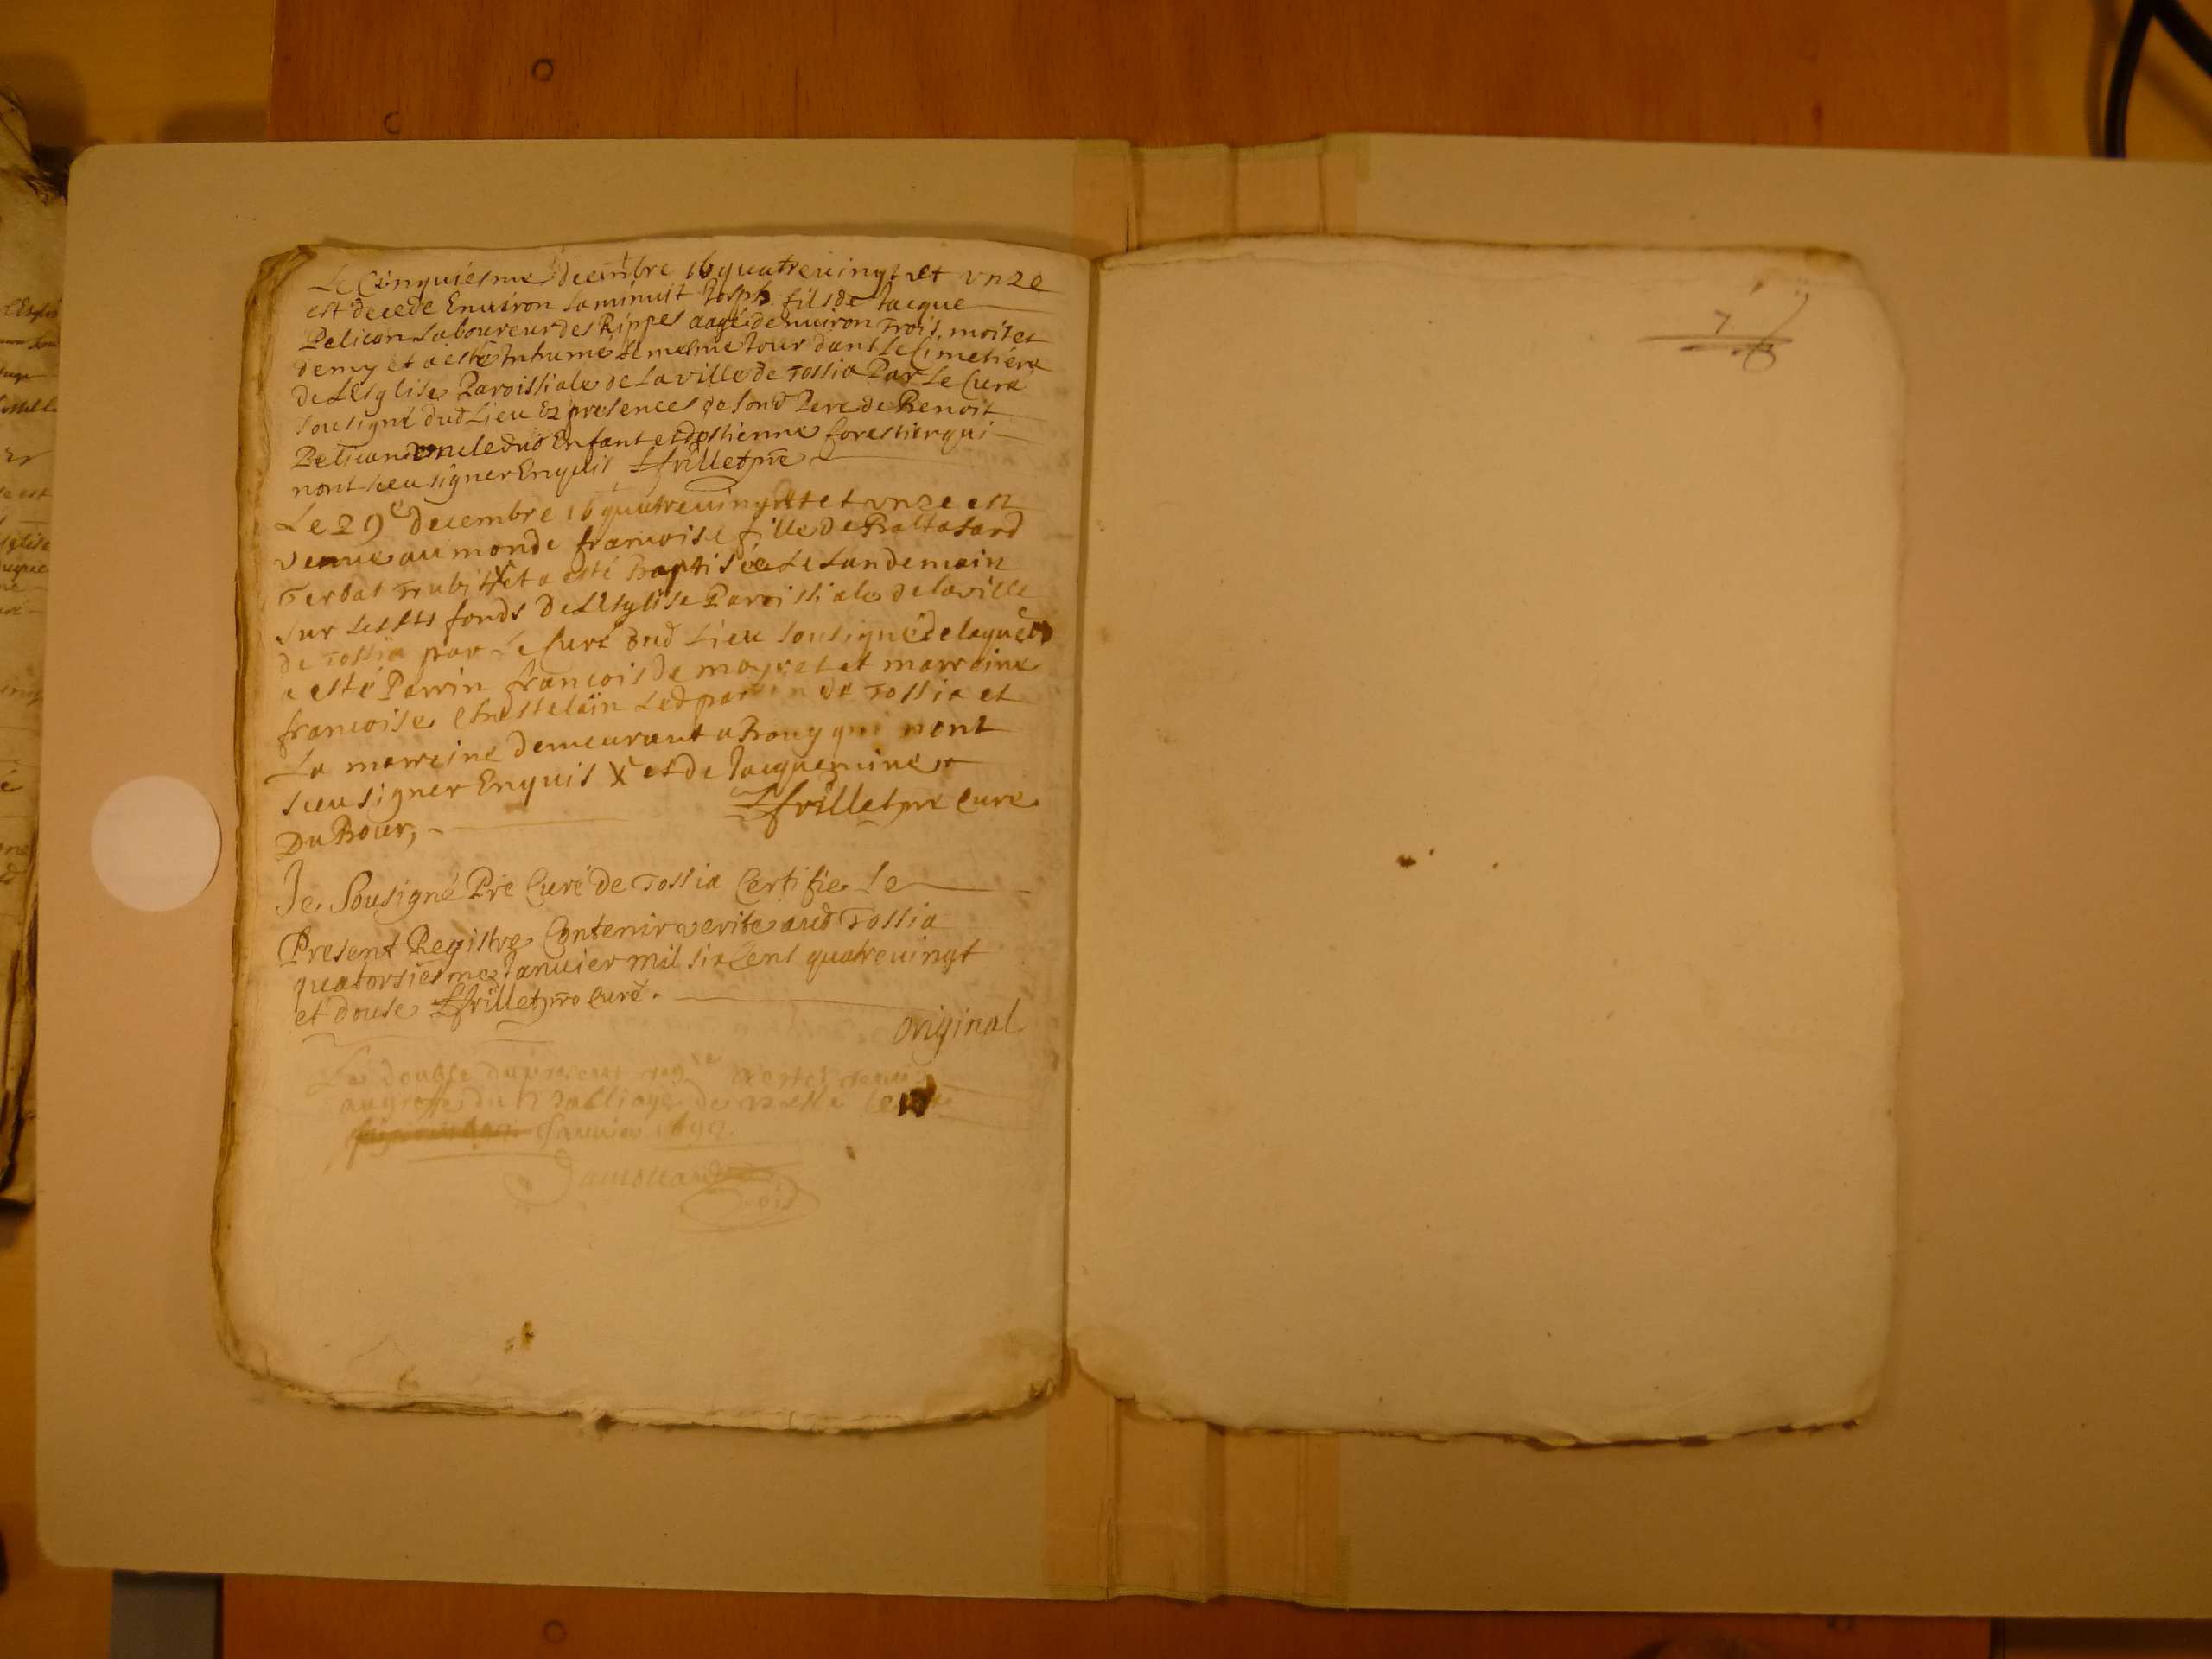 Le Cinquiesme decembre 16 quatrevingt et unze
est decede Environ la minuit Joseph fils de Jacque
Pelican Laboureur des Rippes aagé denviron Trois mois et
demy et a esté Inhumé le mesme Jour dans le Cimetiere
de LEsglise Paroissiale de la ville de Tossia Par Le Curé
sousigné dud Lieu Ez presences de sond Pere de Benoit
Pelican oncle dud Enfant et destienne forestier qui
nont sceu signer Enquis Ffrillet pre
Le 29e decembre 16 quatrevingt et unze est
venue au monde francoise fille de Baltasard
Terbat X et a esté Baptisée Le Landemain
sur Les Sts fonds De LEsglise Paroissiale de la ville
de Tossia par Le Curé dud Lieu sousigné de laquelle
a esté Parrin francois de mayret et marreine
francoise Chastelain Led parrin de Tossia et
La marreine demeurant a Bouy qui nont
sceu signer Enquis X et de Jacquemine
Du Bour, Ffrillet pre Curé
Je Sousigné Pre Curé de Tossia Certifie Le
Present Registre Contenir verite aud Tossia
quatorsiesme Janvier mil six Cens quatrevingt
et douse Ffrillet pre Curé.
original
Le double du present reg.re a esté remis
au greffe du Balliage de le
Janvier 1692.
7